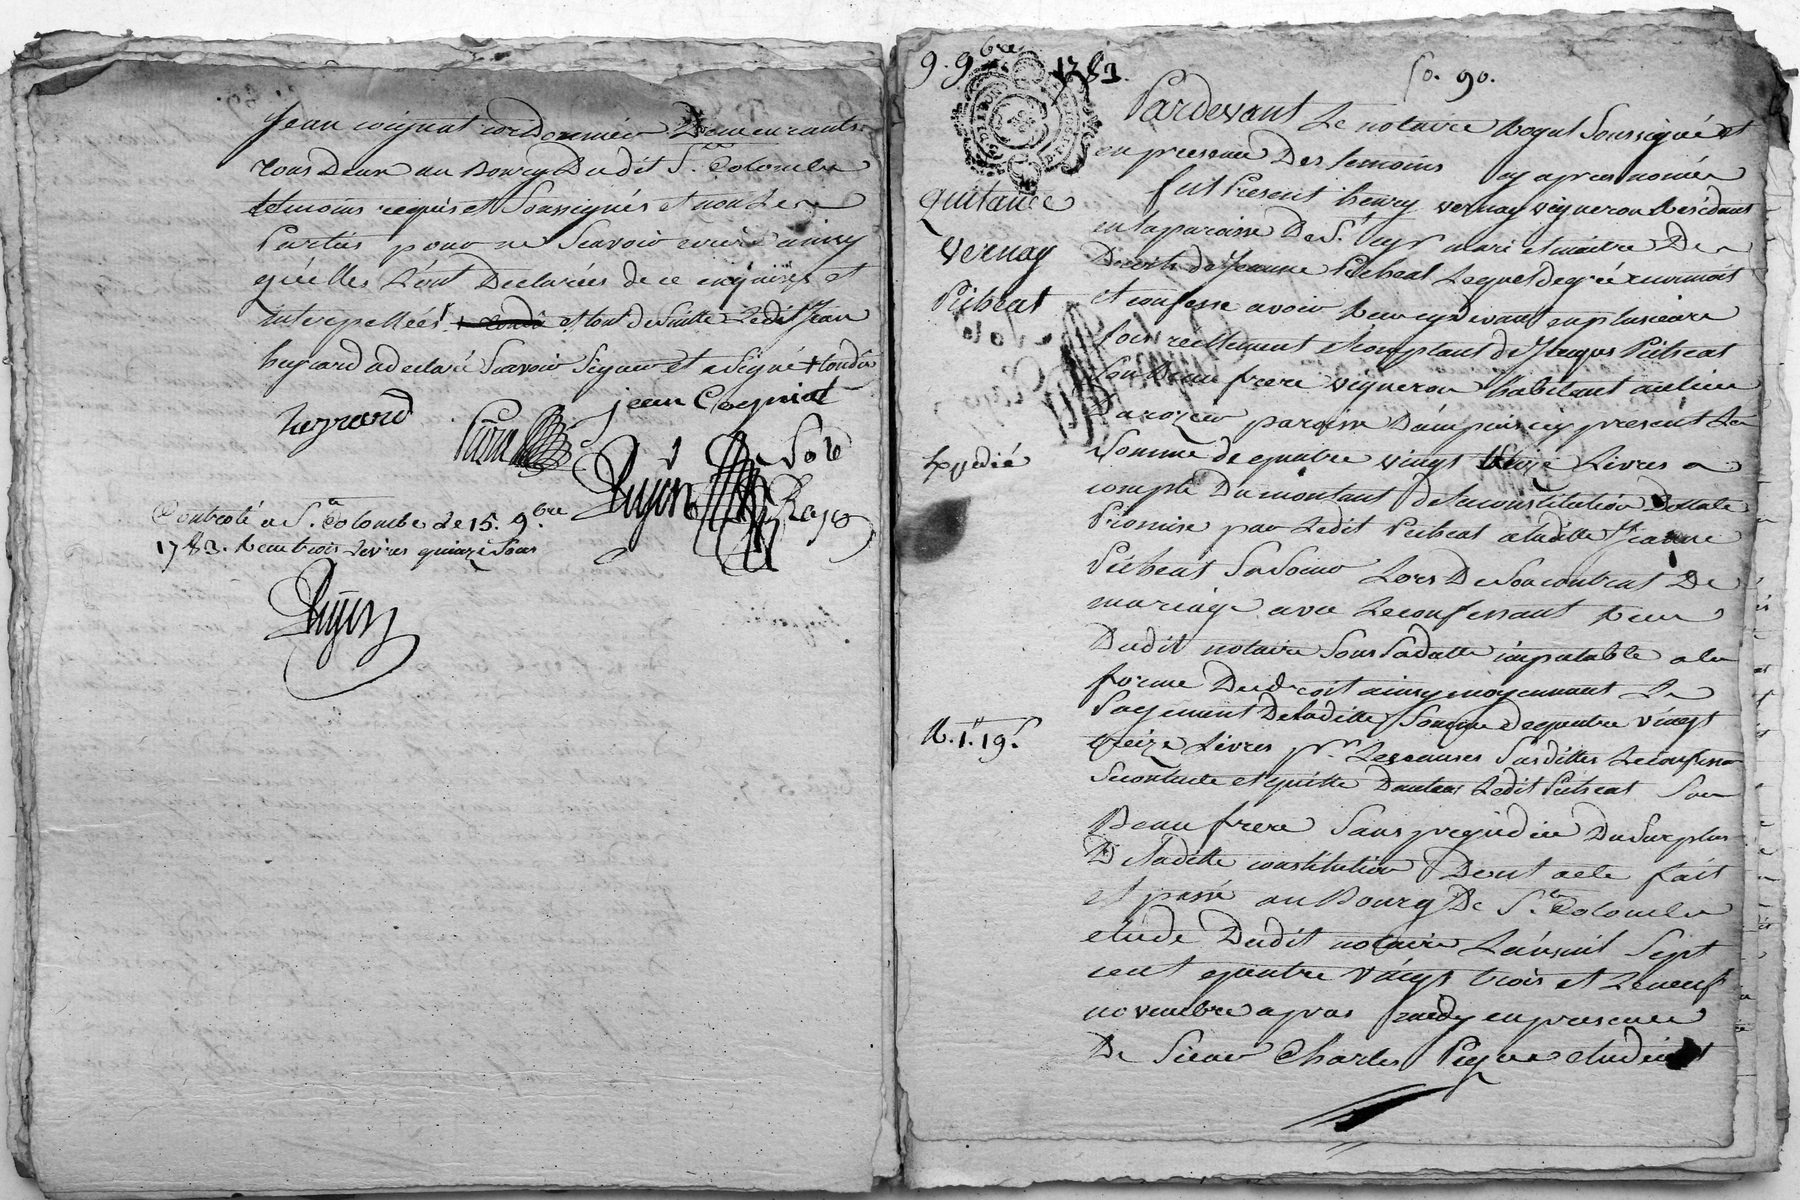 Jean coignat cordonnier Demeurants
tous Deux au Bourg Dudit Ste Colombe
temoins requis et Soussignés et non Les
Parties pour ne Scavoir ecrire ainsy
qu'elles L'ont Declarées de ce enquises et
interpellées et tout de Suitte Ledit Jean
huyrard a declaré Scavoir Signer et a Signé
huyrard
jean Cogniat
Controlé a Ste Colombe Le 15. 9bre
1783. Reçu trois Livres quinze Sous
9. 9bre 1783.
fo. 90.
Pardevant Le notaire Royal Soussigné et
en presence Des temoins cy apres només
fut Present henry vernay vigneron Résidant
en la paroisse De St Cyr mari et maitre Des
Droits de Jeanne Pichat Lequel de gré reconnoit
et confesse avoir Reçu cy Devant en plusieurs
fois reellement et comptant de Jacques Pichat
Son Beaufrere vigneron habitant au lieu
paroisse D'ampuis cy present La
Somme de quatre vingt treize Livres a
compte Du montant De la constitution Dottale
Promise par Ledit Pichat a Laditte Jeanne
Pichat Sa Soeur Lors De Son contrat De
mariage avec Le confessant Reçu
Dudit notaire Sous Sa datte imputable a la
forme Du droit ainsy moyennant Le
Payement De laditte Somme de quatre vingt
treize Livres pr Les causes Susdittes Le confessant
Se contente et quitte D'autant Ledit Pichat Son
Beaufrere Sans prejudice Du Surplus
De Laditte constitution Dont acte fait
et passé au Bourg De Ste Colombe
etude Dudit notaire L'an mil Sept
cent quatre vingt trois et Le neuf
novembre apres midy en presence
De Sieur Charles etudiant
quitance
Vernay
Pichat
Expedié
R. 1.tt 19.s